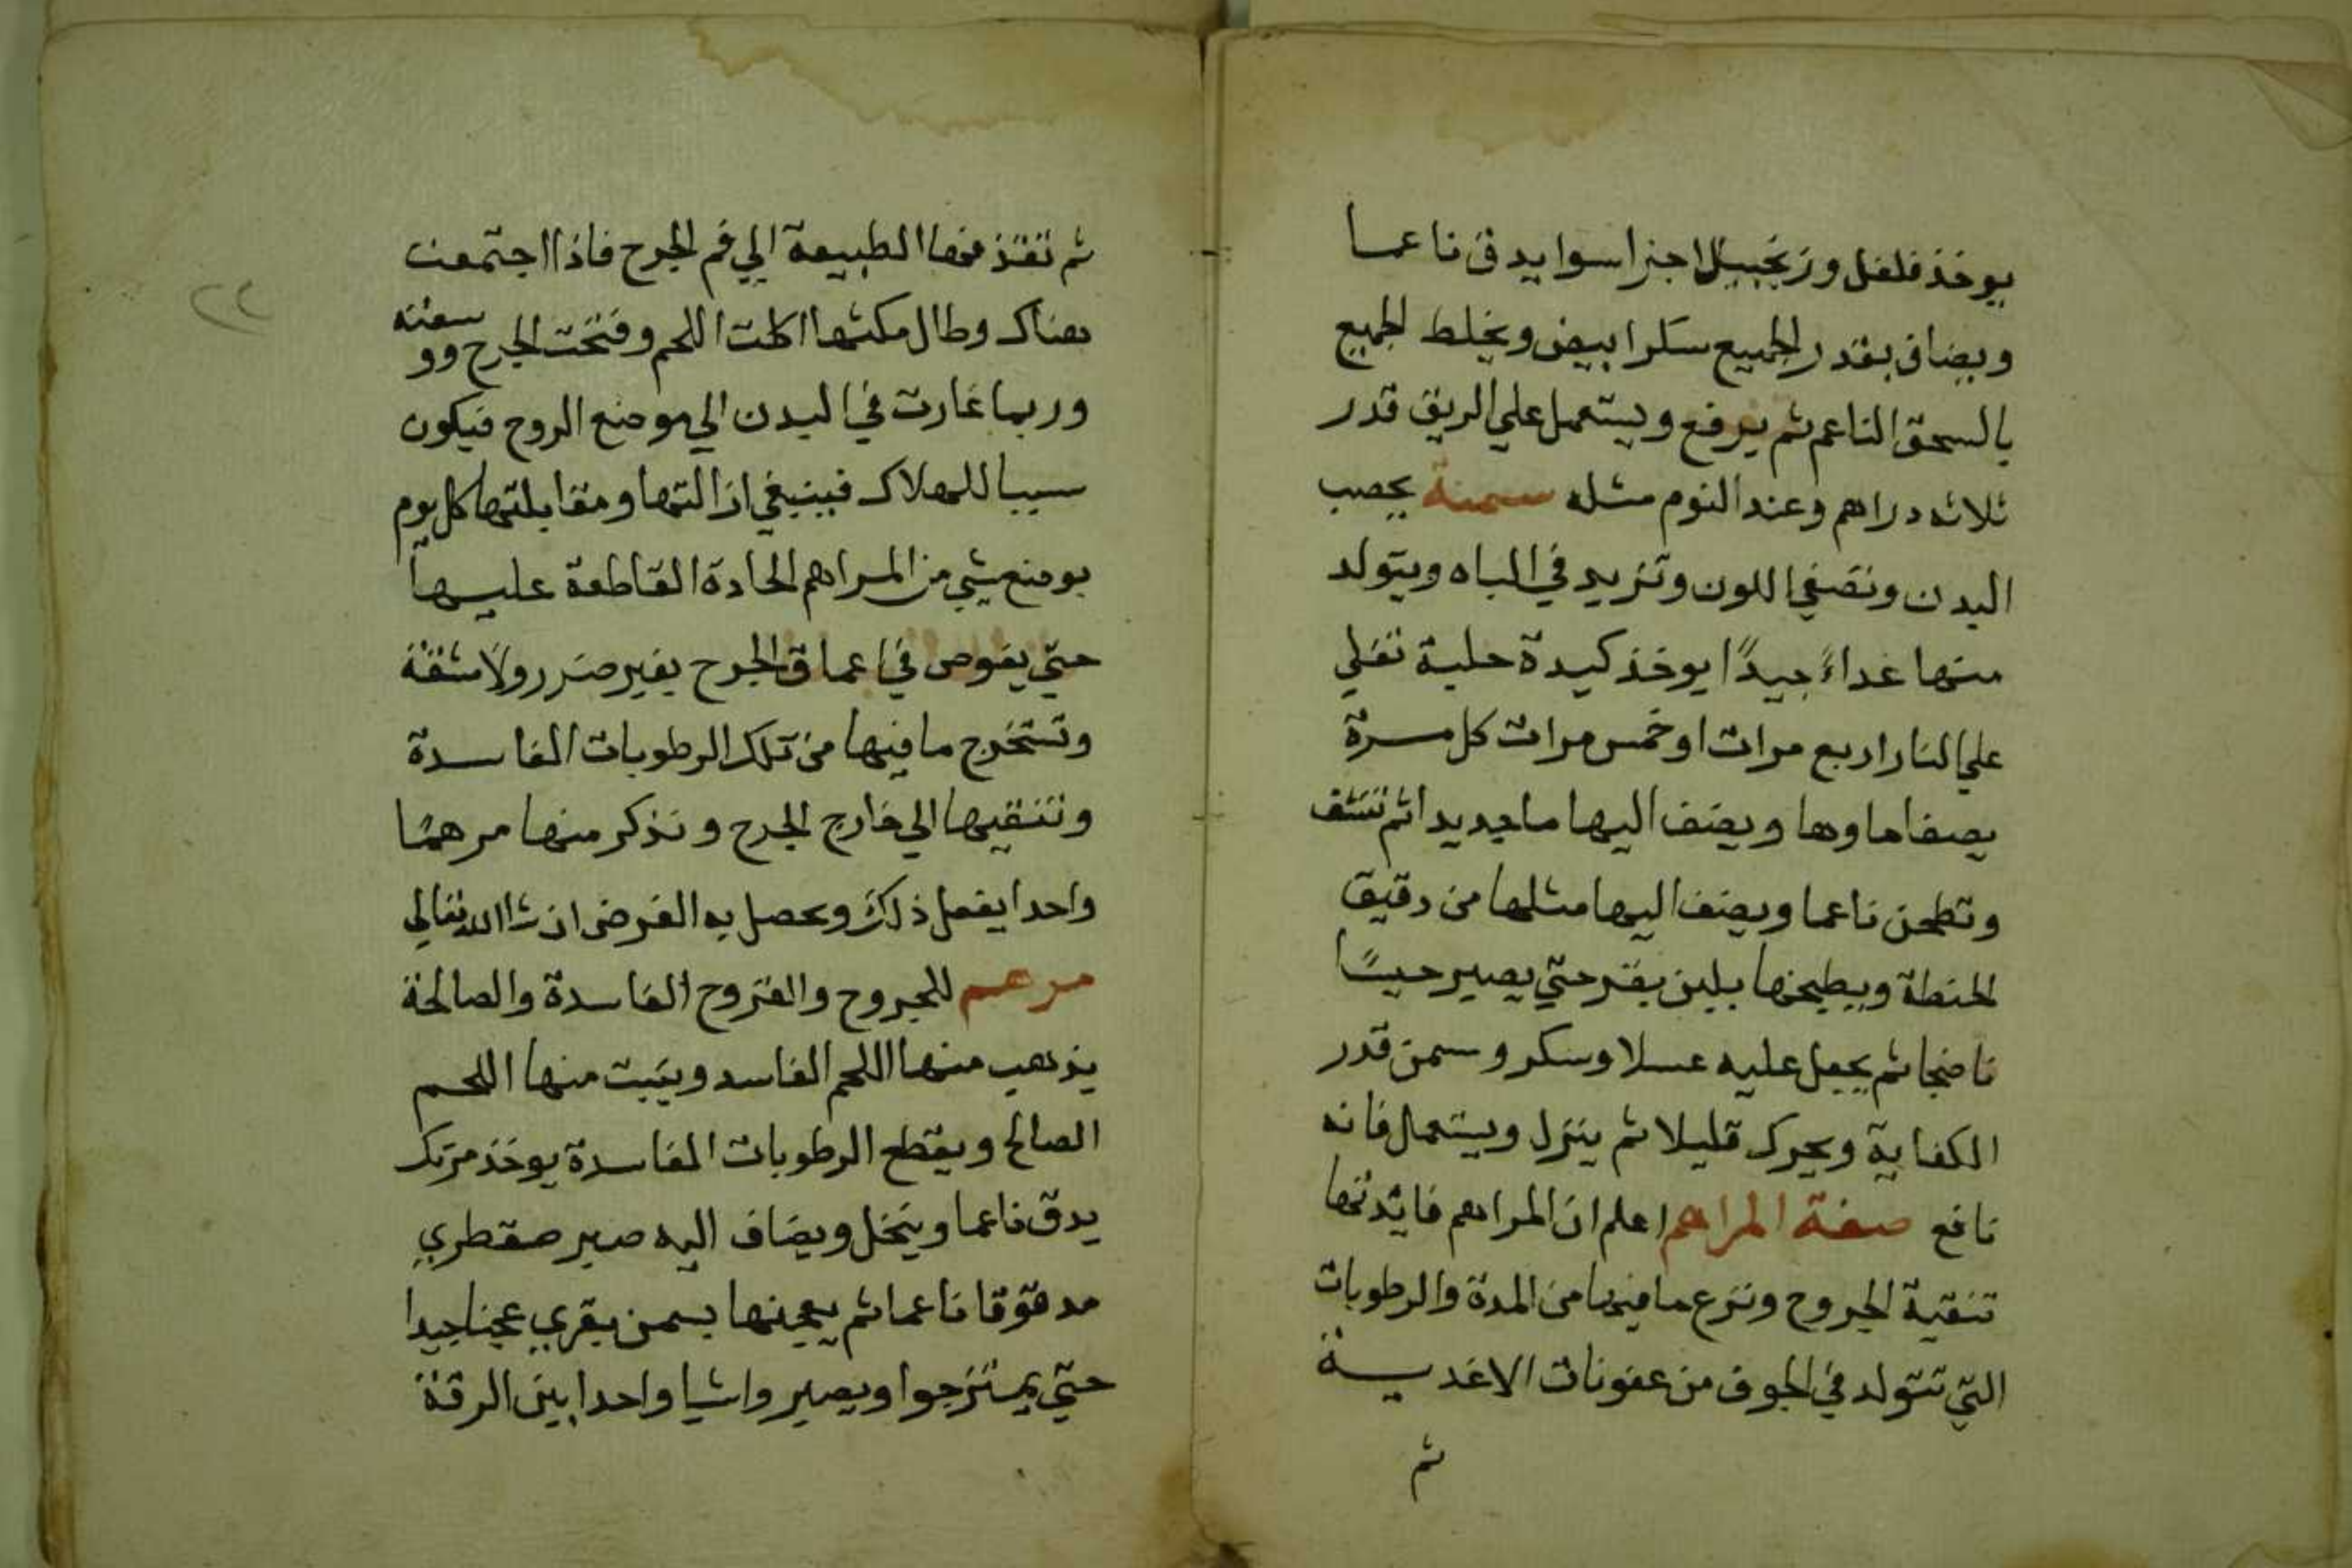 يوخذ فلفل وزنجبيل اجزا سوا يدق ناعما
ويضاف بقدر الجميع سكرا بيض ويخلط الجميع
بالسحق الناعم ثم يرفع ويستعمل علي الريق قدر
ثلاثه دراهم وعند النوم مثله سمنة يخصب
البدن وتصفي اللون وتزيد في الباه ويتولد
منها غداءً جيدًا يوخذ كيدة حلبة تغلي
علي النار اربع مرات او خمس مرات كل مرة
يصفا ماوها ويضف اليها ما جديد اثم تنشف
وتطحن ناعما ويضف اليها مثلها من دقيق
الحنطة ويطبخها بلبن بقر حتي يصير حيسًا
ناضجا ثم يجعل عليه عسلا وسكر وسمن قدر
الكفاية ويحرك قليلا ثم ينزل ويستعمال فانه
نافع صفة المراهم اعلم ان المراهم فايدتها
تنقية الجروح ونزع ما فيها من المدة والرطوبات
التي تتولد في الجوف من عفونات الاغديـة
ثم
٢٢
ثم تنفذ معها الطبيعة الي فم الجرح فاذا اجتمعت
هناك وطال مكثها اكلت اللحم وفتحت الجرح وو سعته
وربما غارت في البدن الي موضع الروح فيكون
سببا للهلاك فينبغي ازالتها ومقابلتها كل يوم
بوضع شي من المراهم الحادة القاطعة عليها
حتي يغوص في اعماق الجرح بغير ضرر ولا مشقة
وتستخرج ما فيها من تلك الرطوبات الفاسدة
وتنقيها الي خارج الجرح ونذكر منها مرهمًا
واحدا يفعل ذلك ويحصل به الغرض ان شا الله تعالي
مرهم للجروح والقروح الفاسدة والصالحة
يذهب منها اللحم الفاسد وينبت منها اللحم
الصالح ويقطع الرطوبات الفاسدة يوخذ مرتك
يدق ناعما وينخل ويضاف اليه صبر صقطري
مدقوقا ناعما ثم يعجنها بسمن بقري عجنا جيدا
حتي يمتزجوا ويصير واشيا واحدا بين الرقة